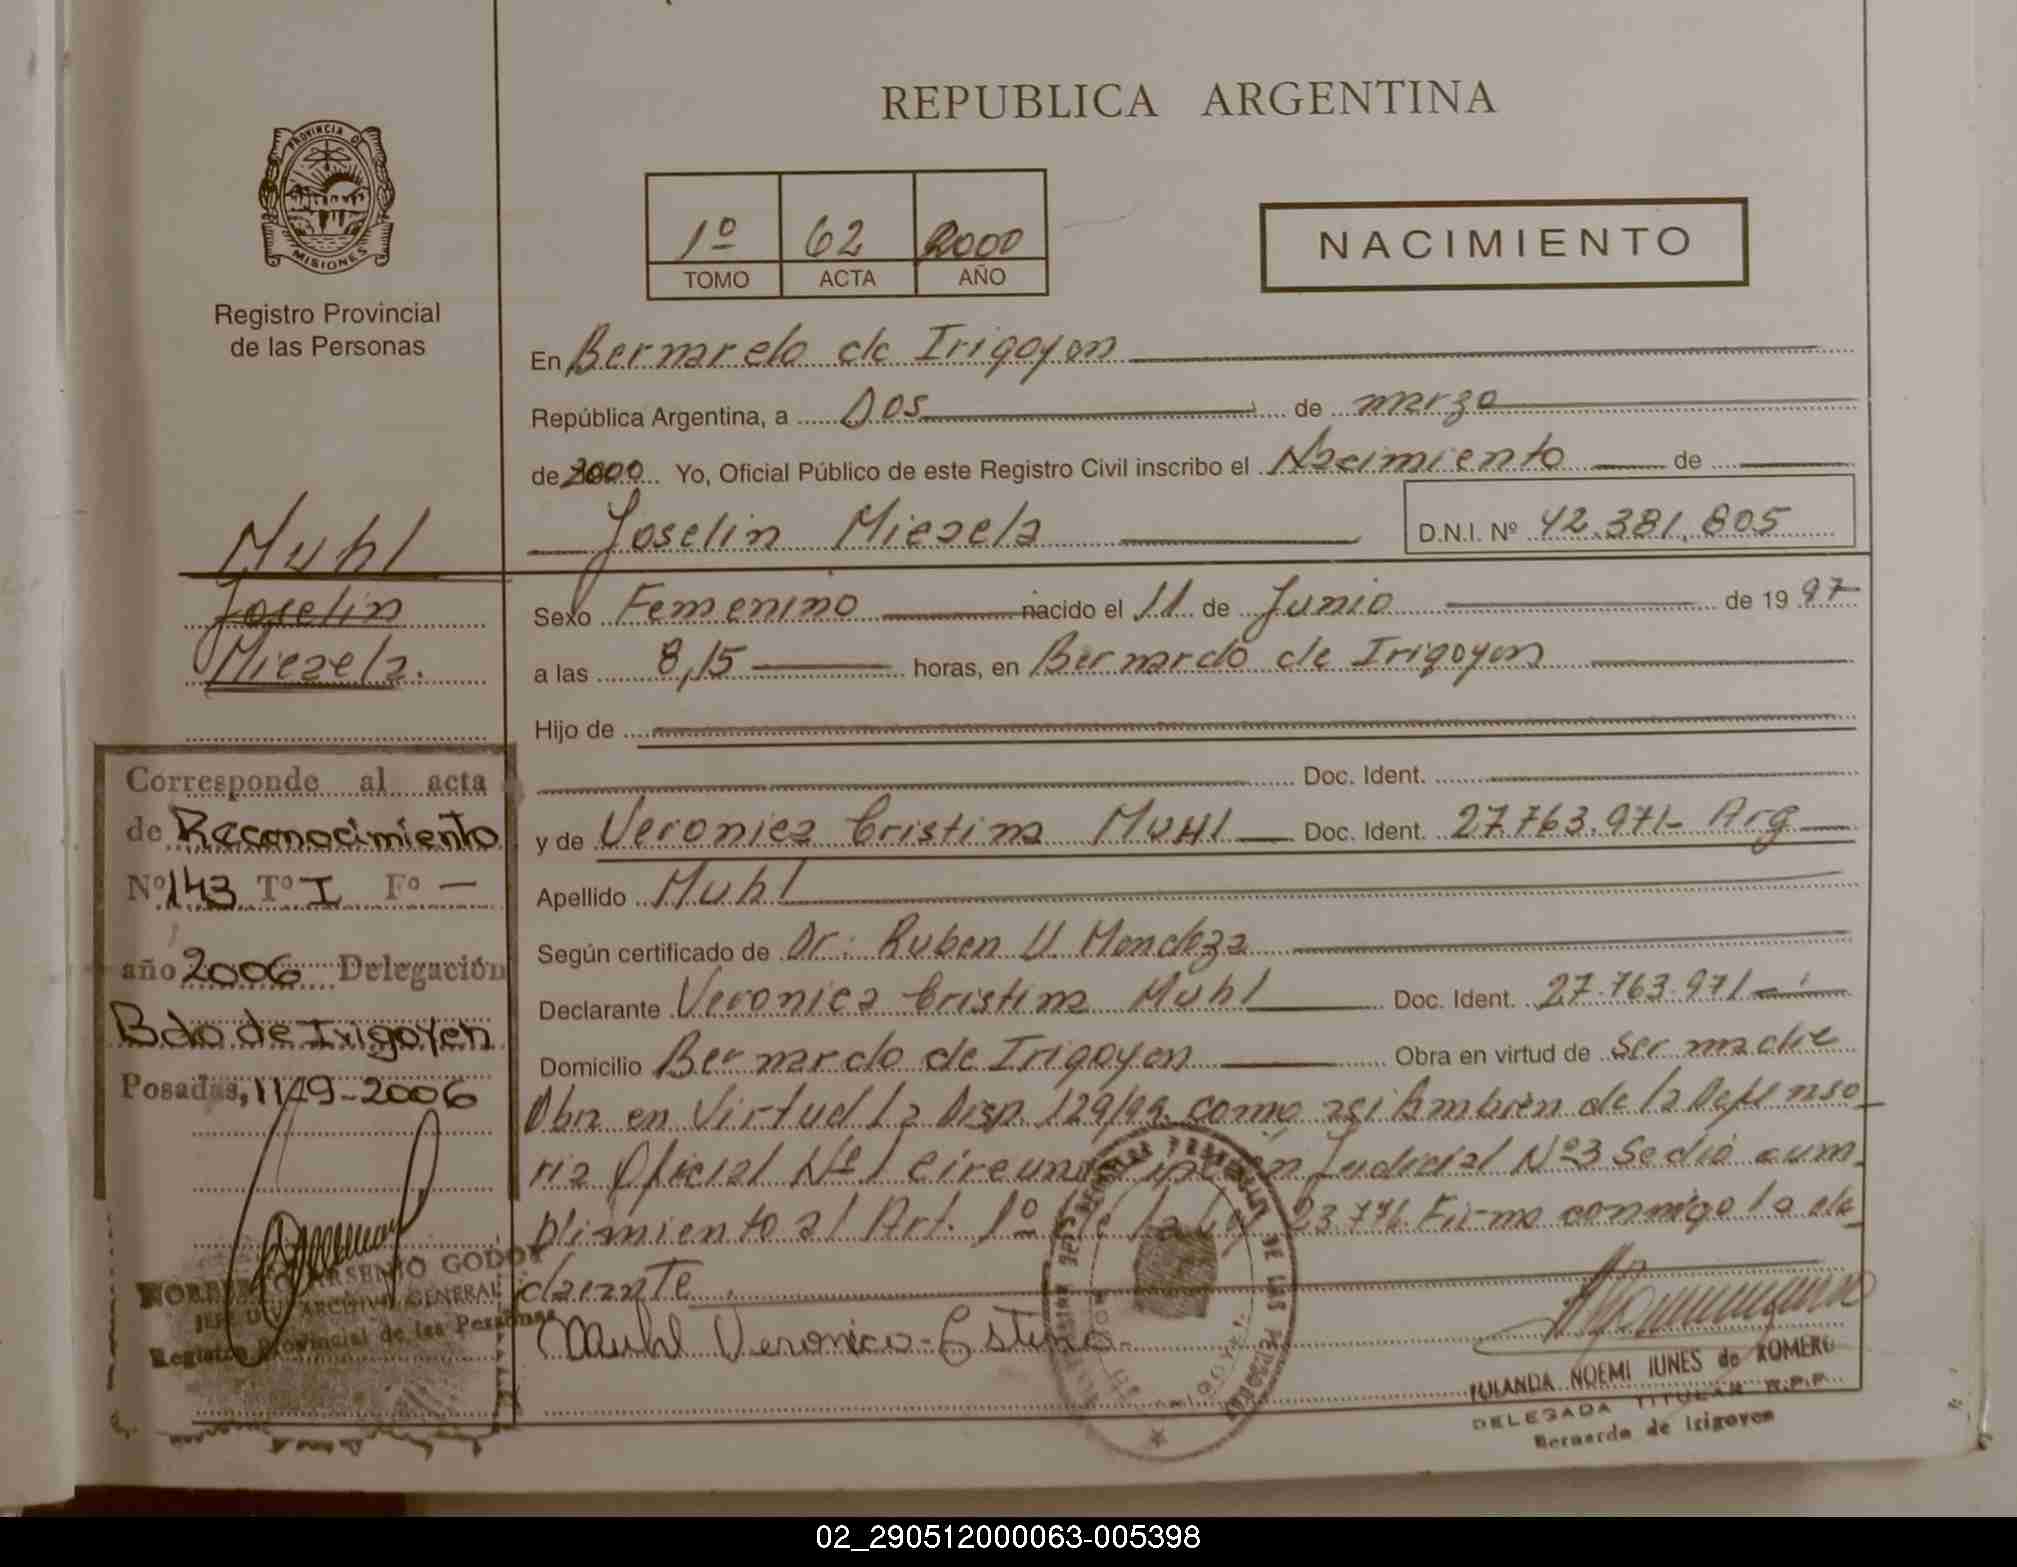 REPUBLICA ARGENTINA
PROVINCIA DE
MISIONES
Registro Provincial
de las Personas
1º 62 2000
TOMO ACTA AÑO
NACIMIENTO
En Bernardo de Irigoyen
República Argentina, a Dos de marzo
de 2000 Yo, Oficial Público de este Registro Civil inscribo el Nacimiento de
Joselin Micaela D.N.I. Nº 42.381.805
Muhl
Joselin
Micaela.
Sexo Femenino nacido el 11 de Junio de 1997
a las 8,15 horas, en Bernardo de Irigoyen
Hijo de
Doc. Ident.
y de Veronica Cristina Muhl Doc. Ident. 27.763.971- Arg
Apellido Muhl
Según certificado de Dr: Ruben U. Mendoza
Declarante Veronica Cristina Muhl Doc. Ident. 27.763.971
Domicilio Bernardo de Irigoyen Obra en virtud de ser madre
Obra en Virtud La Disp. 129/99. como asi tambien de la Defenso
ria Oficial Nº 1 Circunscripción Judicial Nº3 Se dio cum
plimiento al Art. 1º de la Ley 23.776. Firma conmigo la de
clarante.
Muhl Veronica
Corresponde al acta
de Reconocimiento
Nº 143 Tº I Fº —
año 2006 Delegación
Bdo de Irigoyen
Posadas, 11/9-2006
NORBERTO ARSENIO GODOY
JEFE DE ARCHIVO GENERAL
Registro Provincial de las Personas
YOLANDA NOEMI IUNES de ROMERO
DELEGADA TITULAR R.P.P.
Bernardo de Irigoyen
02_290512000063-005398